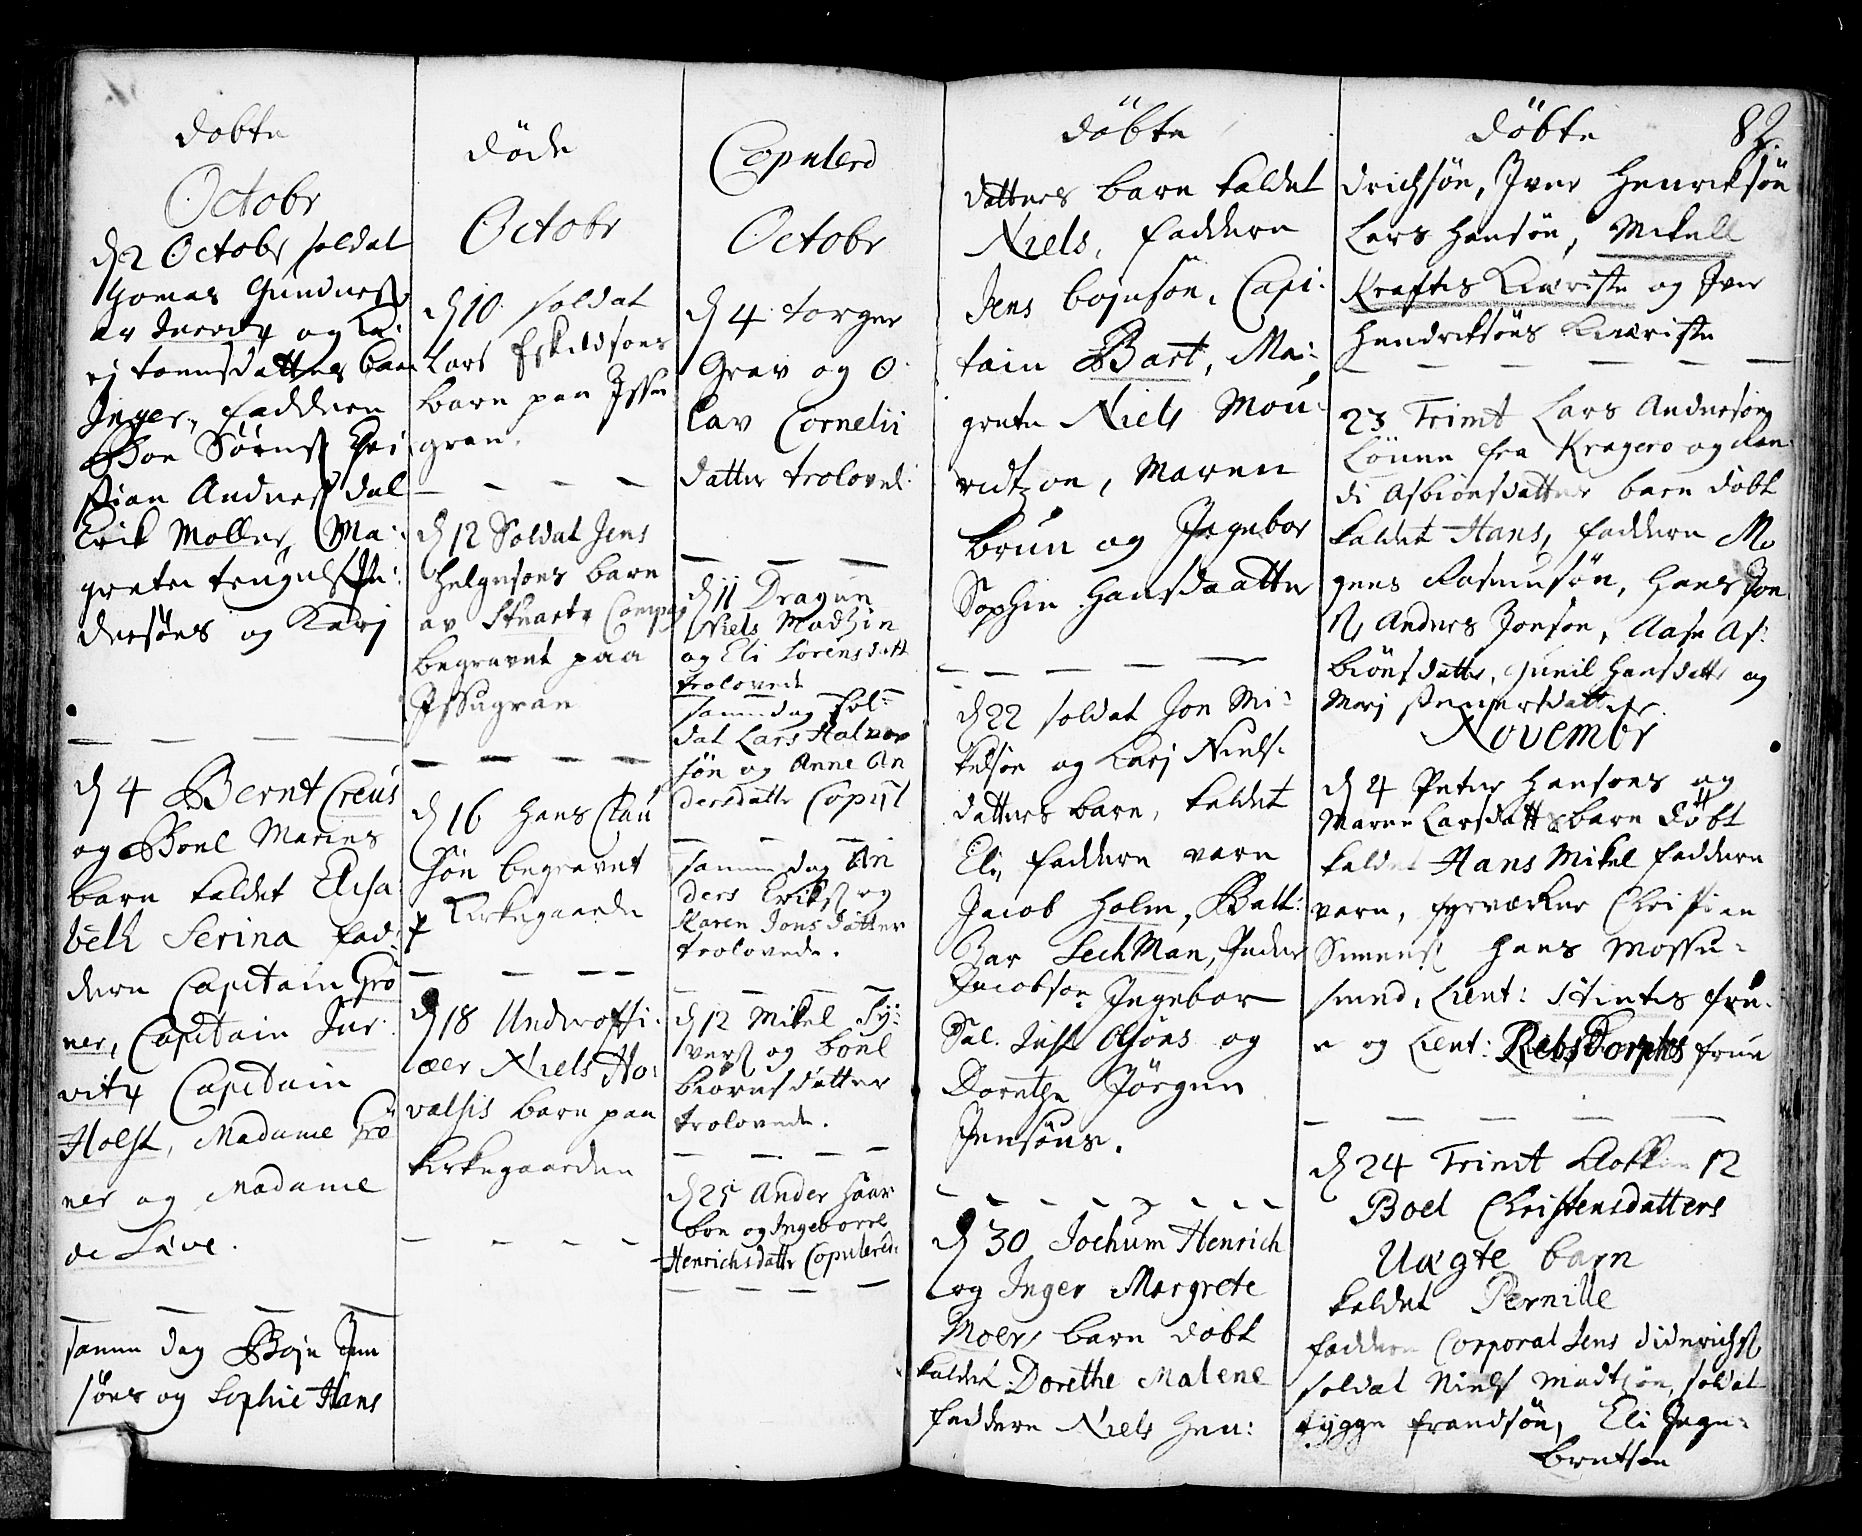 döbte
Octobr
d 2 Octobr soldat
Thomas Gundersß
av og Ka:
rj barn
Inger, faddern
Boe Sørensß Chri
stian Andersß dal
Erik Møller, Ma:
grete Pe:
dersøns og Karj
d 4 Bernt Creüs
og Boel Maries
barn kaldet Elisa
beth Serina fad:
dern Capitain Grö
ner, Capitain Jur
vitz Capitain
Holst, Madame Grö
ner og Madame
de Live.
samme dag Boje Jen
søns og Sophie Hans
döde
Octobr
d 10 soldat
Lars Eskildsøns
barn paa Isse
gran.
d 12 Soldat Jens
Helgesøns barn
av Stuarts Compag
begravet paa
Issegran
d 16 Hans Clau
søn begravet
p Kirkegaarde
d 18 Underoffi:
cær Niels Ho:
valsis barn paa
Kirkegaarden
Copulerd
Octobr
d 4 Torger
Grav og O
lav Cornelii
datter troloved:
d 11 Dragun
Niels Madtzin
og Eli Sørensdatt
trolovede
samme dag sol:
dat Lars Halvor
søn og Anne An
dersdattr Copul
samme dag An
ders Eriksß og
Karen Jons datter
trolovede.
d 12 Mikel Sy:
versß og Boel
Biørnsdatter
trolovede.
d 25 Ander Haar
boe og Ingeborre
Henrichsdattr Copulered:
döbte
datters barn kaldet
Niels, faddern
Jens Bojesøn, Capi:
tain Bart, Ma:
grete Niels Mou:
ridtzøn, Maren
Brun og Ingebor
Sophie Hansdaatter
d 22 soldat Jon Mi:
kelsøn og Karj Niels:
datters barn, kaldet
Eli, faddern varn
Jacob Holm, Balt:
zar Lechman, Peder
Jacobsøn Ingebor
Sal. Olsøns og
Dorethe Jörgen
Jensøns.
d 30 Jochum Henrich
og Inger Margrete
Moers barn döbt
kaldet Dorethe Malene
faddern Niels Hen:
döbte 82.
drichsön, Iver Henriksön
Lars Hansön, Mikell
Krafts Kiæriste og Iver
Hendriksöns Kiæriste
23 Trinit Lars Andersøn
Lönne fra Kragerö og Ran:
di Asbiönsdatter barn döbt
kaldet Hans, faddern Mo
gens Rasmusön, Hans Jon
Anders Jonsøn, Aase As:
biönsdatter, Gunil Hansdattr og
Marj
Novembr
d 4 Peter Hansøns og
Maren Larsdatters barn döbt
kaldet Hans Mikel faddern
varn, fyrværker Christian
Simensß Hans Mosse-
smed, Lieut: Stints fru:
e og Lieut: Rebsdorphs frue
d 24 Trinit Klokken 12
Boel Christensdatters
Uægte barn
kaldet Pernille
faddern Corporal Jens Didrichsß
soldat Niels Madtzøn, soldat
Tygge Frandsön, Eli Inge-
bretsøn